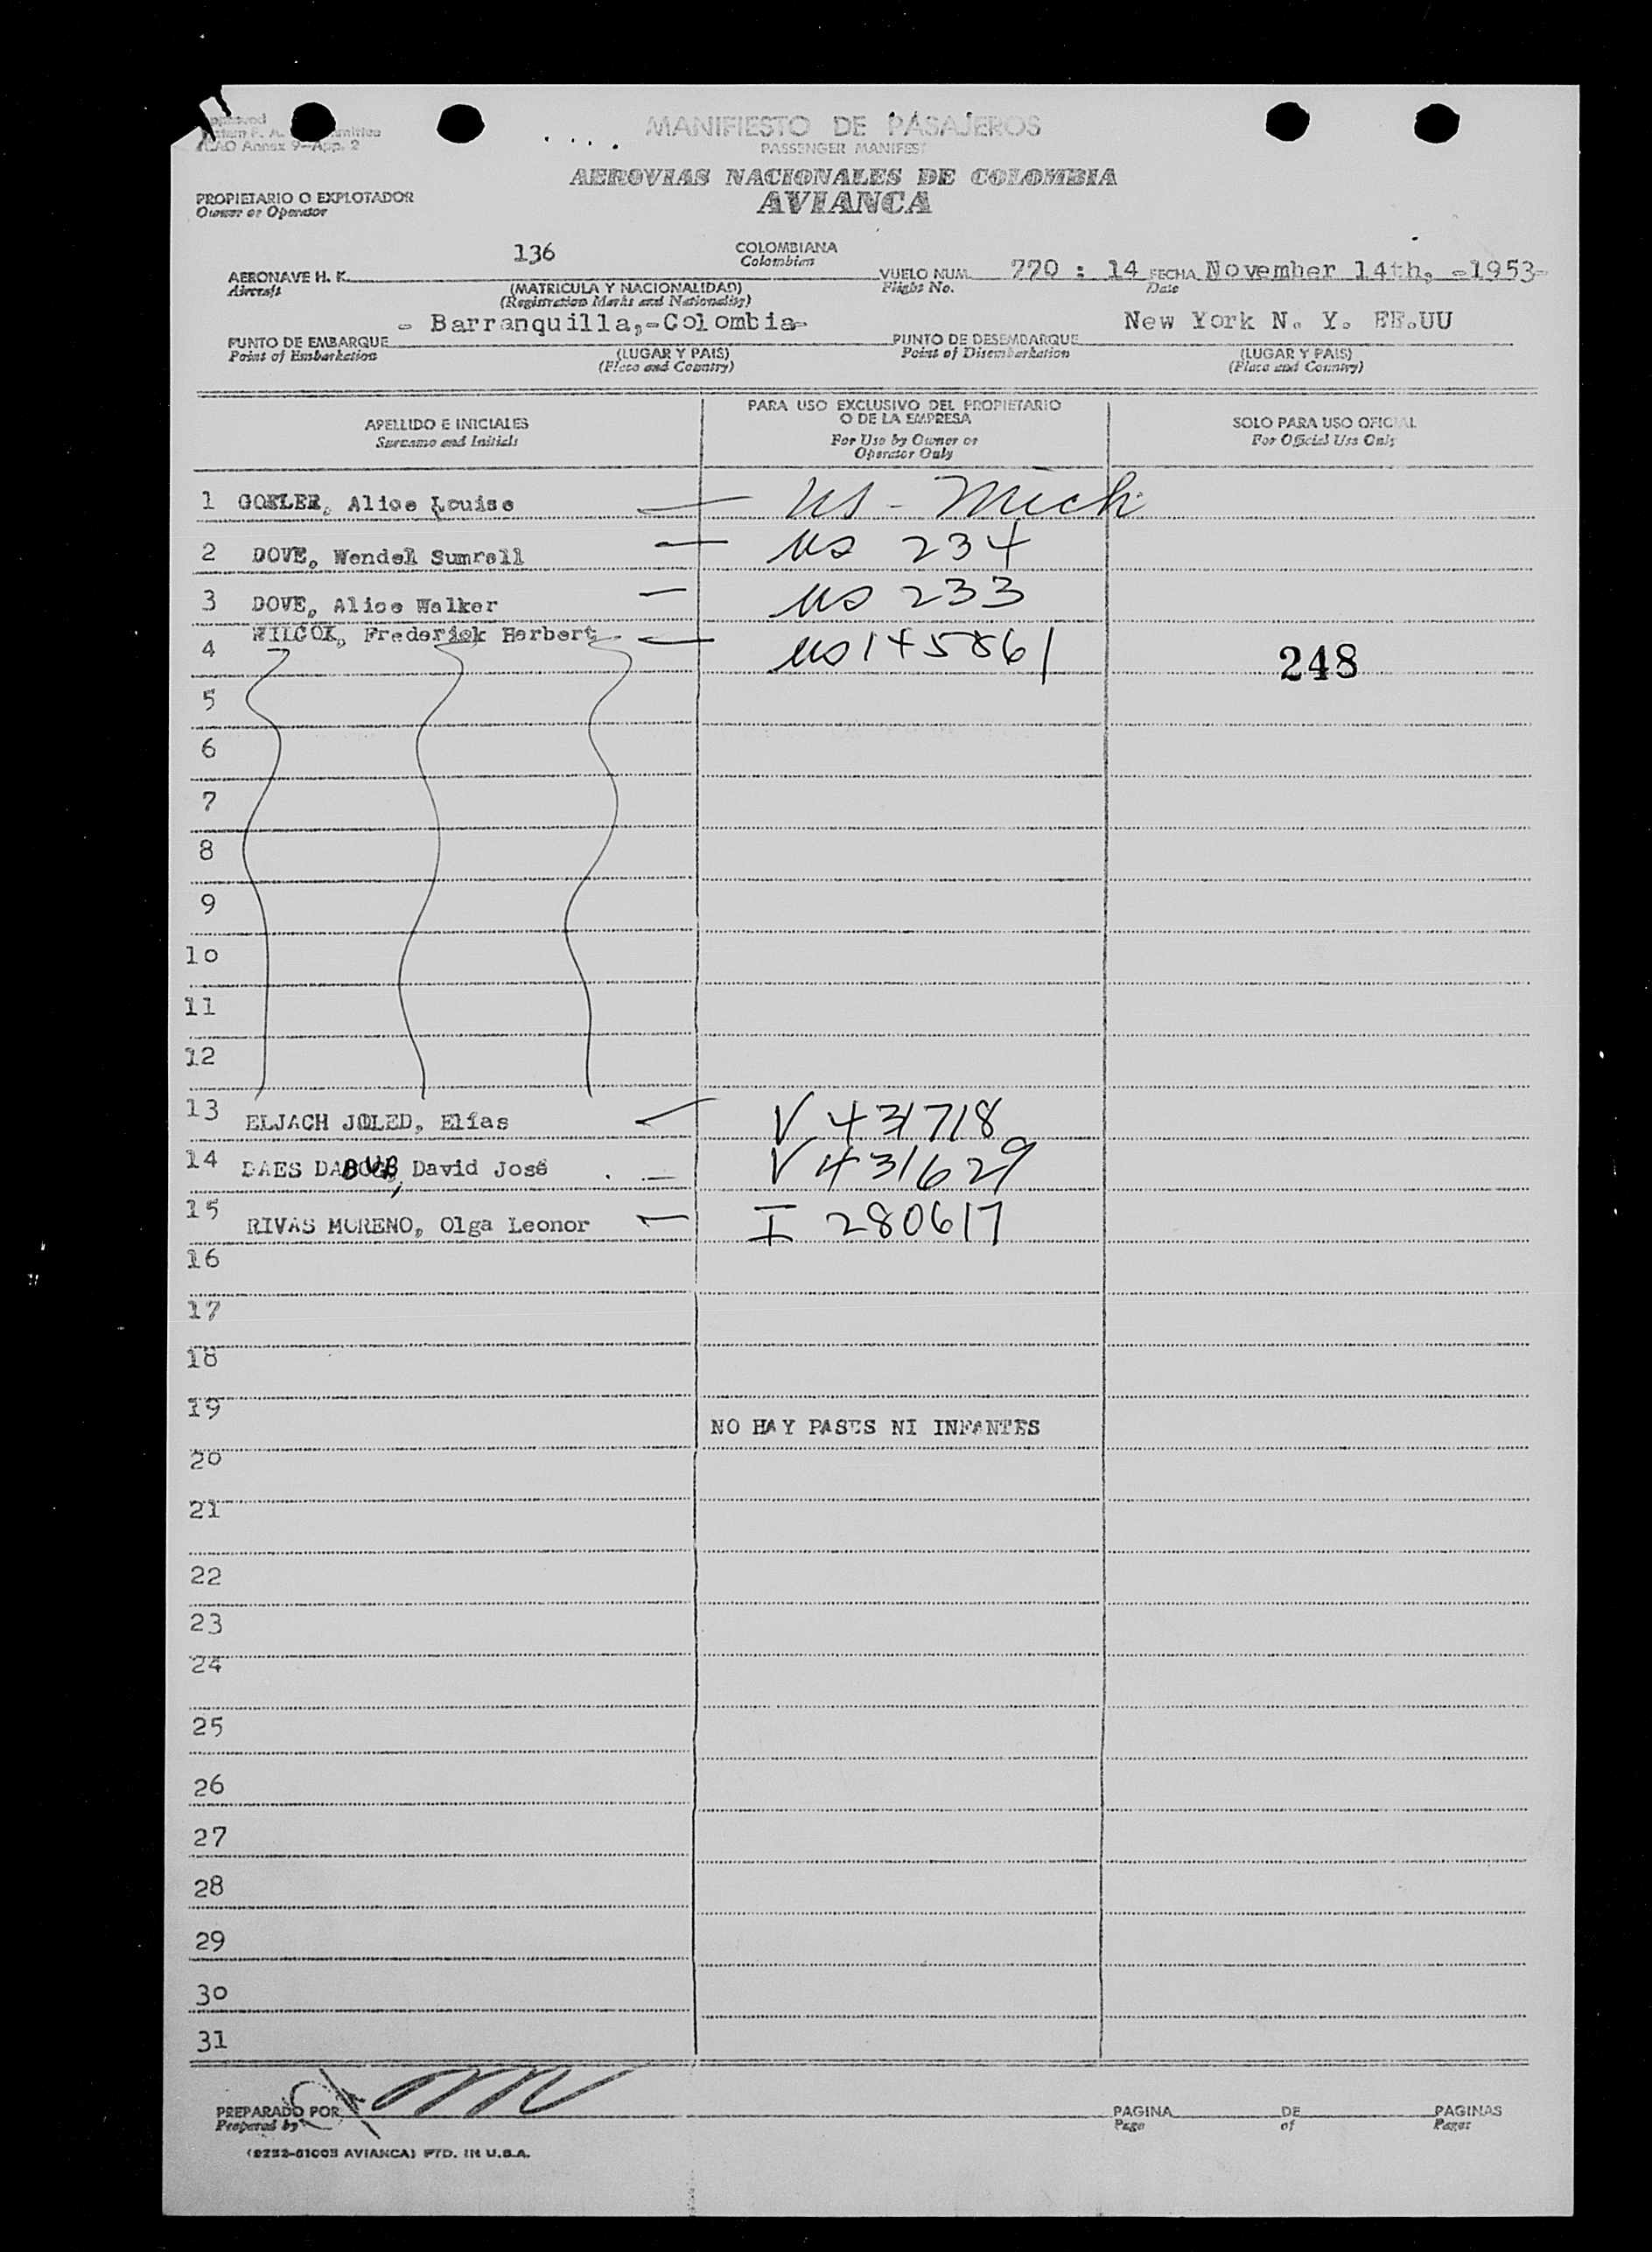 MANIFIESTO DE PASAJEROS
PASSENGER MANIFEST
Annex 9—App. 2
AEROVIAS NACIONALES DE COLOMBIA
AVIANCA
PROPIETARIO O EXPLOTADOR
Owner or Operator
136
COLOMBIANA
Colombian
AERONAVE H. K.
Aircraft
(MATRICULA Y NACIONALIDAD)
(Registration Marks and Nationality)
VUELO NUM. 770 : 14 FECHA November 14th, -1953-
Flight No. Date
- Barranquilla,-Colombia-
New York N. Y. EE.UU
PUNTO DE EMBARQUE
Point of Embarkation
(LUGAR Y PAIS)
(Place and Country)
PUNTO DE DESEMBARQUE
Point of Disembarkation
(LUGAR Y PAIS)
(Place and Country)
APELLIDO E INICIALES
Surname and Initials
PARA USO EXCLUSIVO DEL PROPIETARIO
O DE LA EMPRESA
For Use by Owner or
Operator Only
SOLO PARA USO OFICIAL
For Official Use Only
1 Alice Louise — US - Mich
2 DOVE, Wendel Sumrall — US 234
3 DOVE, Alice Walker — US 233
4 WILCOX, Frederick Herbert — US 145861
248
5
6
7
8
9
10
11
12
13 ELJACH Elías — V 431718
14 DAES David José — V 431629
15 RIVAS MORENO, Olga Leonor — I 280617
16
17
18
19
NO HAY PASES NI INFANTES
20
21
22
23
24
25
26
27
28
29
30
31
PREPARADO POR
Prepared by
PAGINA DE PAGINAS
Page of Pages
AVIANCA) PTD. IN U.S.A.